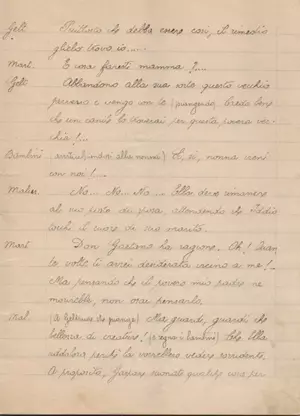 Gelt. Piuttosto che debba essere così, il rimedio
glielo trovo io......
Mart. E cosa fareste mamma?....
Gelt. Abbandono alla sua sorte questo vecchio
perverso e vengo con te (piangendo). Credo bene
che un canile lo troverai per questa povera vec-
chia!...
Bambini (avvicinandosi alla nonna) Sì, sì, nonna vieni
con noi!....
No... No... No... Ella deve rimanere
al suo posto di sposa attendendo che Iddio
tocchi il cuore di suo marito.
Mart. Don Gaetano ha ragione. Oh! quan
te volte ti avrei desiderata vicino a me!...
Ma pensando che il povero mio padre ne
morirebbe, non osai pensarlo.
(a Geltrude che piange) Ma guardi, guardi che
bellezza di creature! (segna i bambini) Che Ella
addolora perchè la vorrebbero vedere sorridente.
A proposito, Gaspare